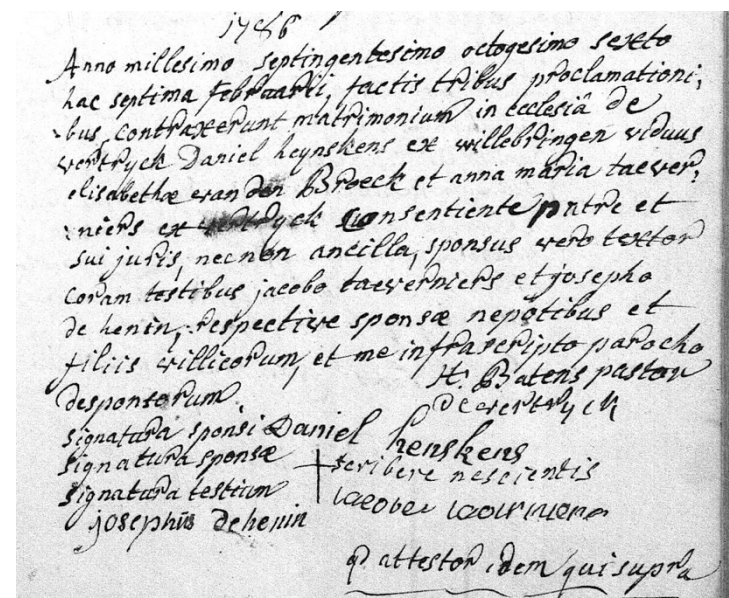 1786
Anno millesimo septingentesimo octogesimo sexto
hac septima Februarii, factis tribus proclamationi,
bus, contraxerunt matrimonium in ecclesiâ de
vertryck Daniel heynskens ex willebringen viduus
elisabethæ van den Broeck et anna maria taever,
niers ex vertryck Consentiente patre et
sui juris, necnon ancilla, sponsus vero textor
coram testibus jacobo taeverniers et josepho
de henin, respective sponsæ nepotibus et
filiis willicorum, et me infrascripto parocho
H. Batens pastor
desponsorum.
de vertryck
signatura sponsi Daniel henskens
signatura sponsæ + scribere nescientis
signatura testium
josephus de henin
qd attestor idem qui supra